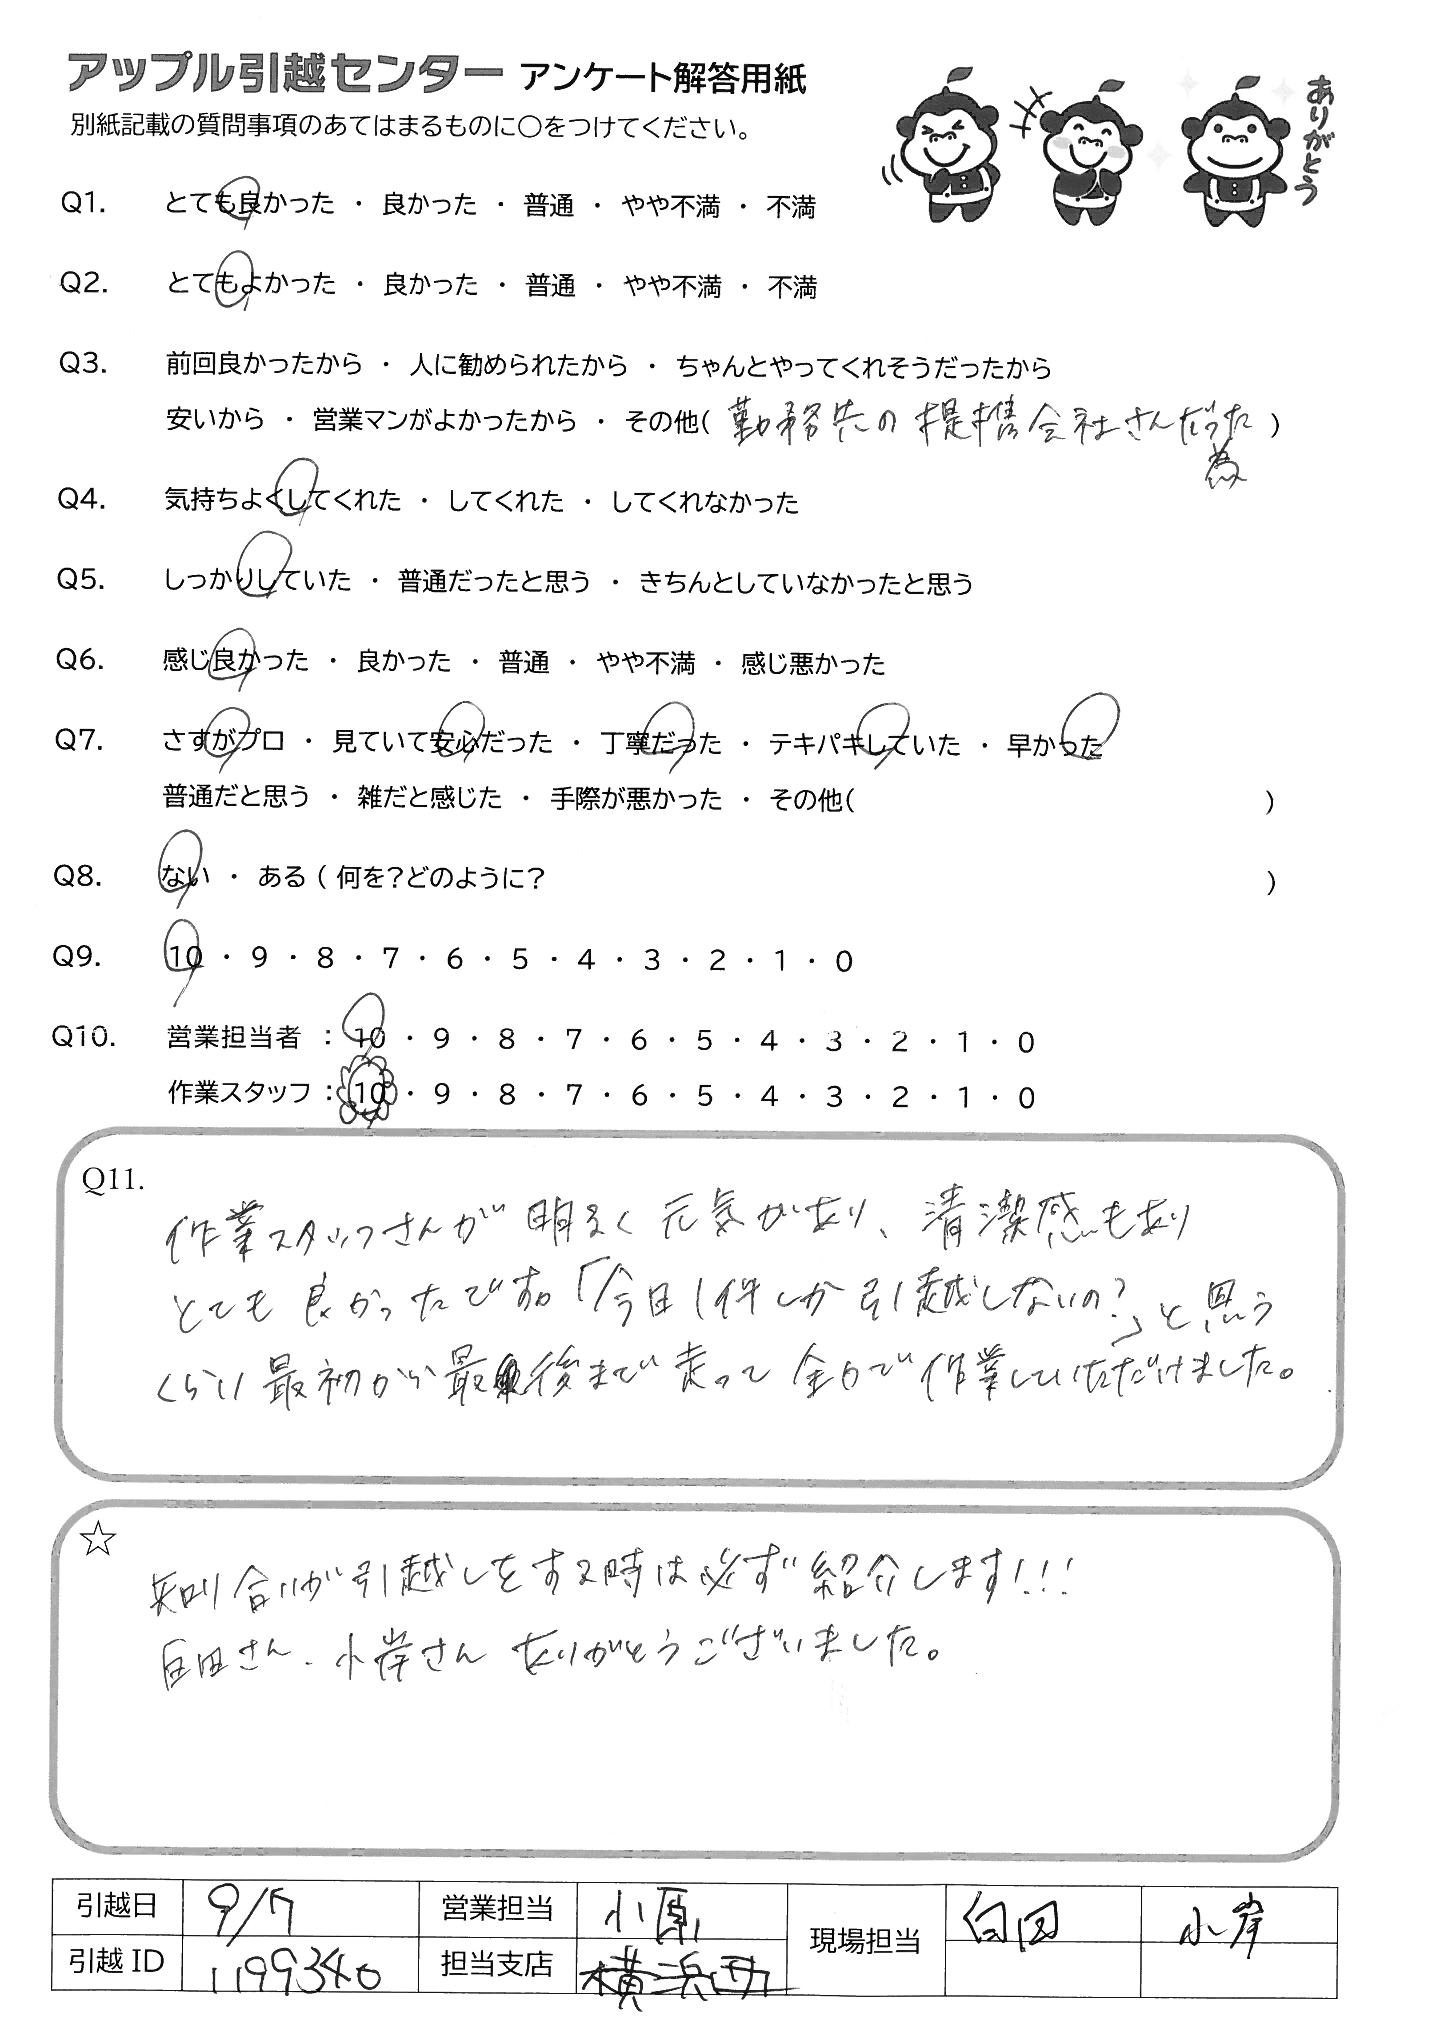 アップル引越センター アンケート解答用紙
別紙記載の質問事項のあてはまるものに○をつけてください。
ありがとう
Q1. とても良かった ・ 良かった ・ 普通 ・ やや不満 ・ 不満
Q2. とてもよかった ・ 良かった ・ 普通 ・ やや不満 ・ 不満
Q3. 前回良かったから ・ 人に勧められたから ・ ちゃんとやってくれそうだったから
安いから ・ 営業マンがよかったから ・ その他( 勤務先の提携会社さんだった )
為
Q4. 気持ちよくしてくれた ・ してくれた ・ してくれなかった
Q5. しっかりしていた ・ 普通だったと思う ・ きちんとしていなかったと思う
Q6. 感じ良かった ・ 良かった ・ 普通 ・ やや不満 ・ 感じ悪かった
Q7. さすがプロ ・ 見ていて安心だった ・ 丁寧だった ・ テキパキしていた ・ 早かった
普通だと思う ・ 雑だと感じた ・ 手際が悪かった ・ その他( )
Q8. ない ・ ある ( 何を?どのように? )
Q9. 10 ・ 9 ・ 8 ・ 7 ・ 6 ・ 5 ・ 4 ・ 3 ・ 2 ・ 1 ・ 0
Q10. 営業担当者 : 10 ・ 9 ・ 8 ・ 7 ・ 6 ・ 5 ・ 4 ・ 3 ・ 2 ・ 1 ・ 0
作業スタッフ : 10 ・ 9 ・ 8 ・ 7 ・ 6 ・ 5 ・ 4 ・ 3 ・ 2 ・ 1 ・ 0
Q11.
作業スタッフさんが明るく元気があり、清潔感もあり
とても良かったです。「今日1件しか引越しないの?」と思う
くらい最初から最後まで走って全力で作業していただけました。
☆
知り合いが引越しをする時は必ず紹介します!!!
臼田さん、小岸さんありがとうございました。
引越日 9/7 営業担当 小原 現場担当 臼田 小岸
引越ID 1199340 担当支店 横浜西